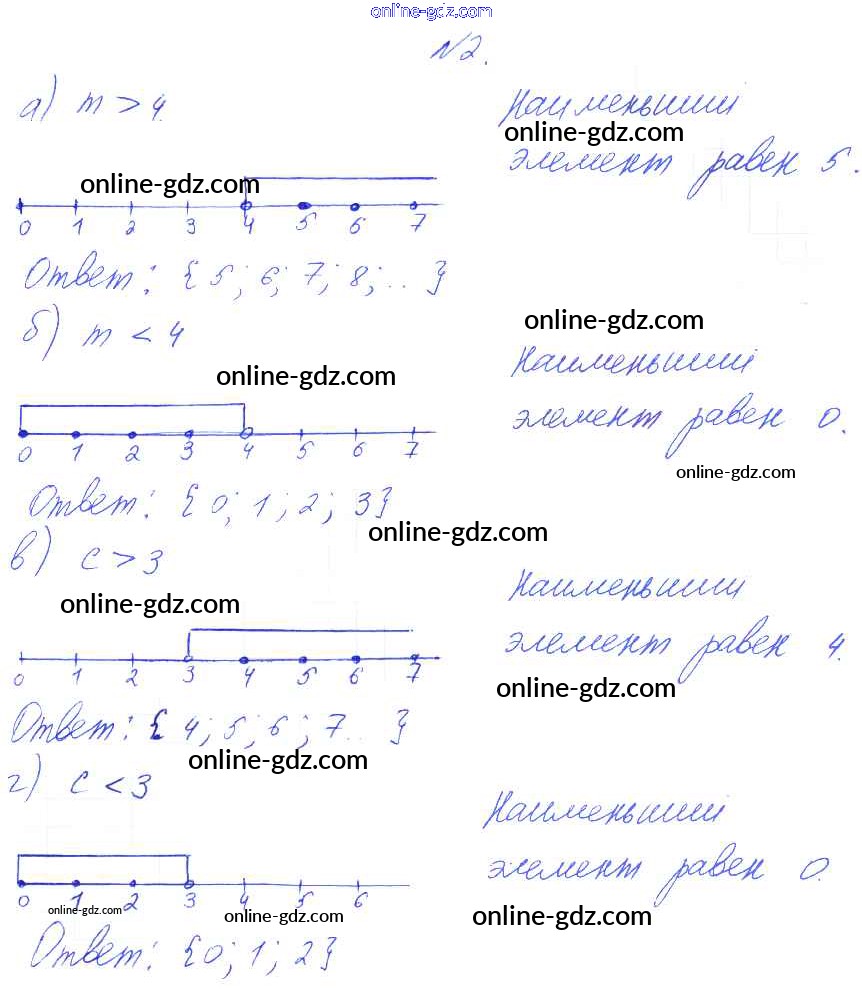 online-gdz.com
№2.
а) m > 4
Наименьший
online-gdz.com
элемент равен 5.
online-gdz.com
0 1 2 3 4 5 6 7
Ответ: {5; 6; 7; 8; ...}
б) m < 4
online-gdz.com
Наименьший
online-gdz.com
элемент равен 0.
0 1 2 3 4 5 6 7
online-gdz.com
Ответ: {0; 1; 2; 3}
online-gdz.com
в) c > 3
Наименьший
online-gdz.com
элемент равен 4.
0 1 2 3 4 5 6 7
online-gdz.com
Ответ: {4; 5; 6; 7... }
online-gdz.com
г) c < 3
Наименьший
элемент равен 0.
0 1 2 3 4 5 6
online-gdz.com
online-gdz.com
online-gdz.com
Ответ: {0; 1; 2}